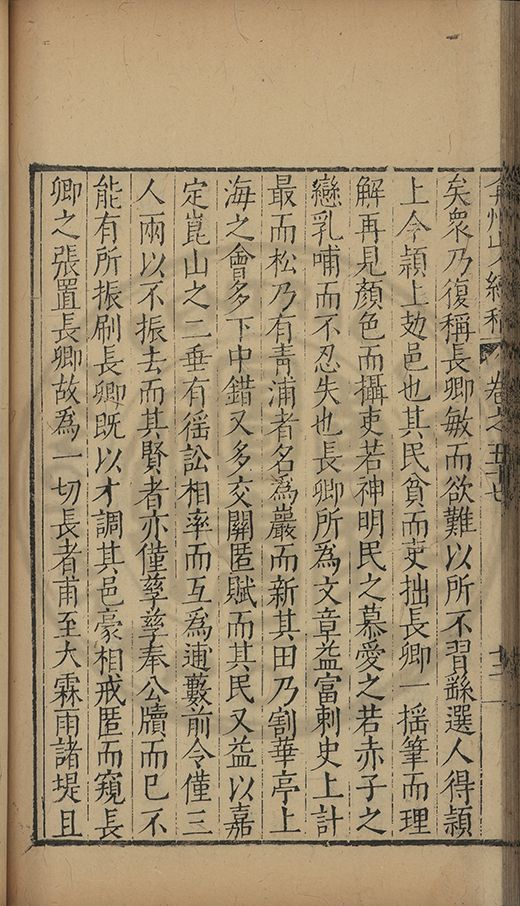 弇州山人續稿 卷之五十七 十二
矣衆乃復稱長卿敏而欲難以所不習繇選人得潁
上今潁上劾邑也其民貧而吏拙長卿一揺筆而理
解再見顏色而攝吏若神明民之慕愛之若赤子之
戀乳哺而不忍失也長卿所爲文章益富刺史上計
最而松乃有靑浦者名爲巖而新其田乃割華亭上
海之會多下中錯又多交關匿賦而其民又益以嘉
定崑山之二垂有徭訟相率而互爲逋藪前令僅三
人兩以不振去而其賢者亦僅孳孳奉公牘而已不
能有所振刷長卿旣以才調其邑豪相戒匿而窺長
卿之張置長卿故爲一切長者甫至大霖雨諸堤且